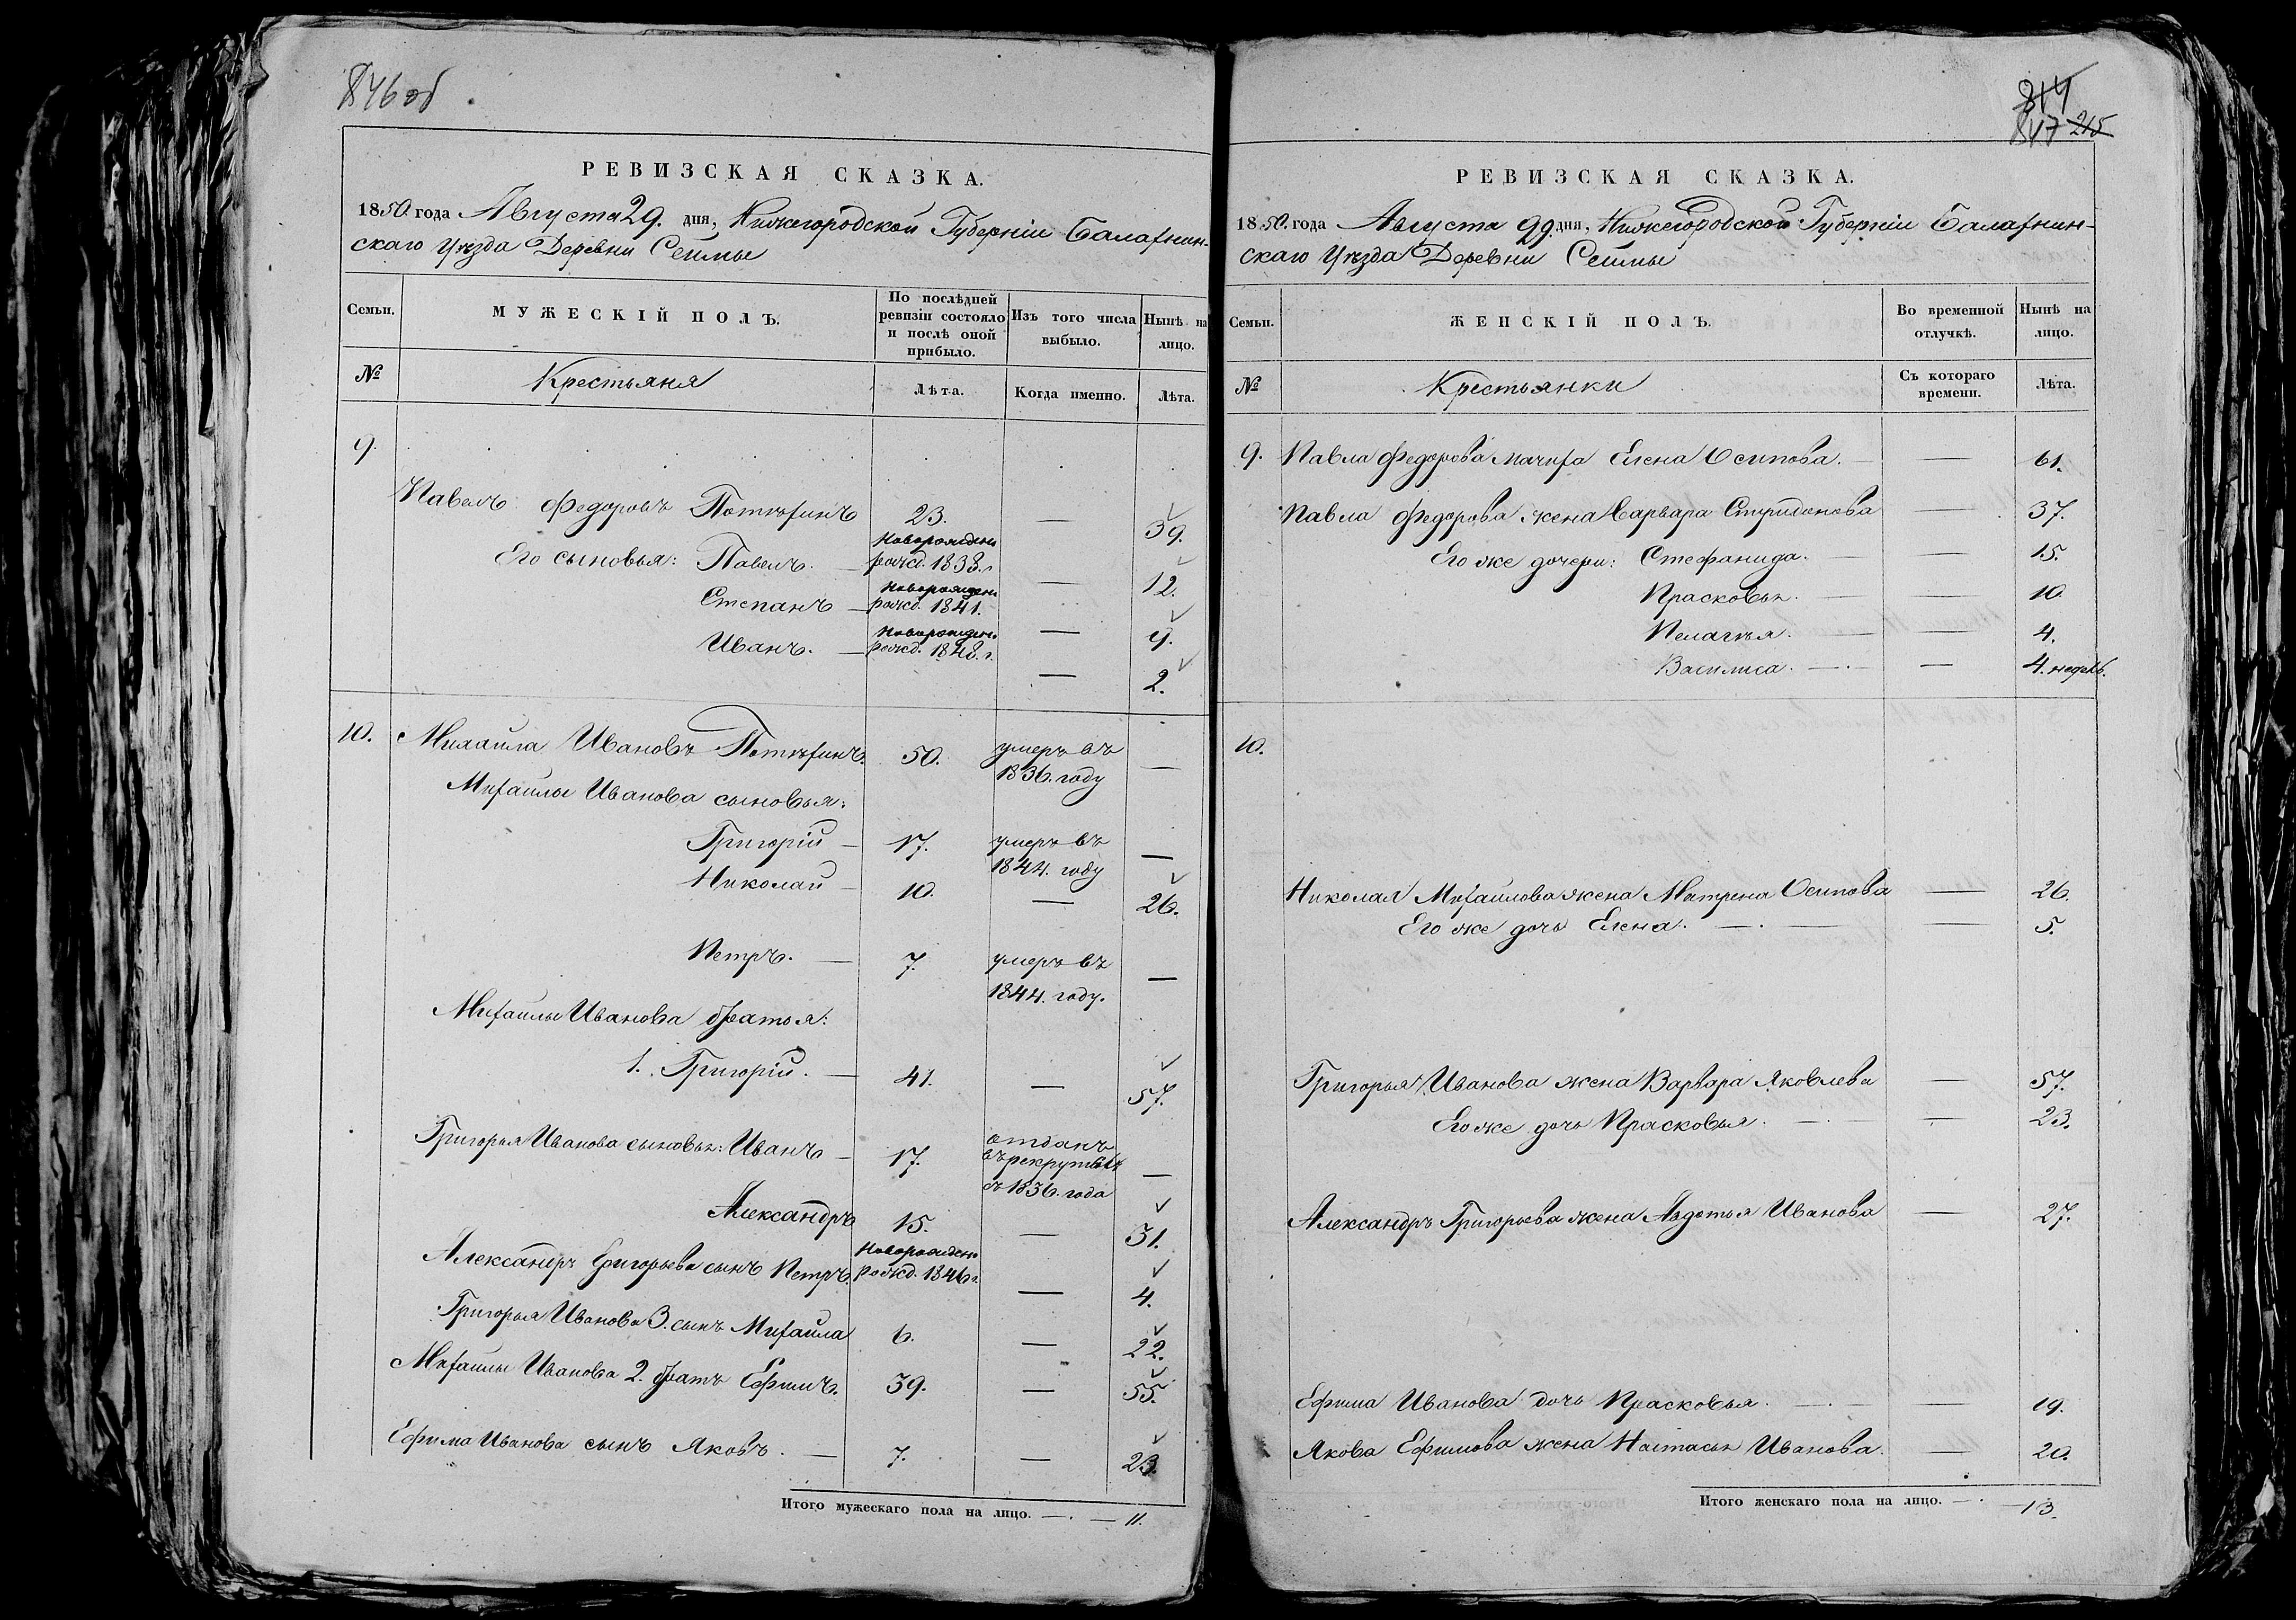 846 об
РЕВИЗСКАЯ СКАЗКА.
1850. года Августа 29. дня, Нижегородской Губернiи Балахнин-
скаго Уѣзда Деревни Сеймы
Семьи.
МУЖЕСКІЙ ПОЛЪ.
По послѣдней ревизіи состояло и послѣ оной прибыло.
Изъ того числа выбыло.
Нынѣ на лицо.
№
Крестьяня
Лѣта.
Когда именно.
Лѣта.
9.
Павелъ Федоровъ 23. — 39.
Его сыновья: Павелъ. — новорожден рожд. 1838. г — 12.
Степанъ — новорожден рожд. 1841. — 9.
Иванъ. — новорожден. рожд. 1848. г. — 2.
10. Михаила Ивановъ 50. умеръ въ 1836. году —
Михаилы Иванова сыновья:
Григорій — 17. умеръ въ 1844. году —
Николай — 10. — 26.
Петръ. — 7. умеръ въ 1844. году. —
Михаилы Иванова братья:
1. Григорій. — 41. — 57.
Григорья Иванова сыновья: Иванъ — 17. отданъ въ рекруты съ 1836. года —
Александръ 15. — 31.
Александръ Григорьева сынъ Петръ. новорожден. рожд. 1846 г. — 4.
Григорья Иванова 3. сынъ Михаила 6. — 22.
Михаилы Иванова 2. братъ Ефимъ. 39. — 55.
Ефима Иванова сынъ Яковъ. — 7. — 23.
Итого мужескаго пола на лицо. — . — 11.
814
847 215
РЕВИЗСКАЯ СКАЗКА.
1850. года Августа 29. дня, Нижегородской Губерніи Балахнин-
скаго Уѣзда Деревни Сеймы
Семьи.
ЖЕНСКІЙ ПОЛЪ.
Во временной отлучкѣ.
Нынѣ на лицо.
№
Крестьянки
Съ котораго времени.
Лѣта.
9. Павла Федорова мачиха Елена Осипова. — 61.
Павла Федорова жена Варвара Спиридонова — 37.
Его же дочери: Стефанида. — 15.
Прасковья. — 10.
Пелагѣя. — 4.
Василиса. — . — — 4. недѣль.
10.
Николая Михаилова жена Матрена Осипова — 26.
Его же дочь Елена. — . — — 5.
Григорья Иванова жена Варвара Яковлева — 57.
Его же дочь Прасковья. — . — — 23.
Александръ Григорьева жена Авдотья Иванова — 27.
Ефима Иванова дочь Прасковья. — . — — 19.
Якова Ефимова жена Настасья Иванова. — 20.
Итого женскаго пола на лицо. — . — 13.